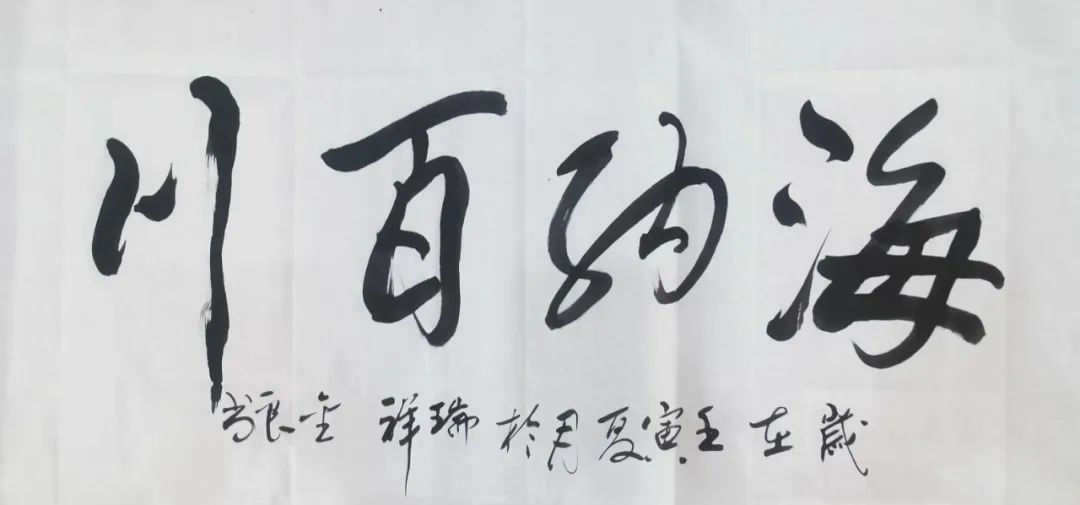 海纳百川
岁在壬寅夏月於瑞祥 金良書